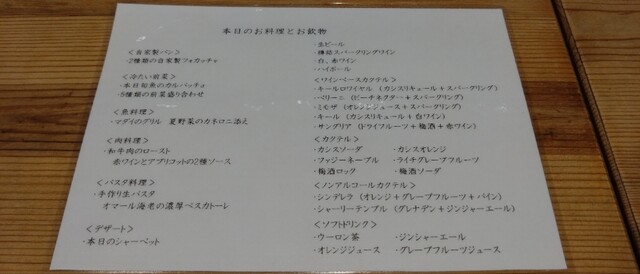 本日のお料理とお飲物
＜自家製パン＞
・2種類の自家製フォカッチャ
＜冷たい前菜＞
・本日旬魚のカルパッチョ
・5種類の前菜盛り合わせ
＜魚料理＞
・マダイのグリル　夏野菜のカネロニ添え
＜肉料理＞
・和牛肉のロースト
赤ワインとアプリコットの2種ソース
＜パスタ料理＞
・手作り生パスタ
オマール海老の濃厚ペスカトーレ
＜デザート＞
・本日のシャーベット
・生ビール
・樽詰スパークリングワイン
・白、赤ワイン
・ハイボール
＜ワインベースカクテル＞
・キールロワイヤル（カシスリキュール＋スパークリング）
・ベリーニ（ピーチネクター＋スパークリング）
・ミモザ（オレンジジュース＋スパークリング）
・キール（カシスリキュール＋白ワイン）
・サングリア（ドライフルーツ＋梅酒＋赤ワイン）
＜カクテル＞
・カシスソーダ　・カシスオレンジ
・ファジーネーブル　・ライチグレープフルーツ
・梅酒ロック　・梅酒ソーダ
＜ノンアルコールカクテル＞
・シンデレラ（オレンジ＋グレープフルーツ＋パイン）
・シャーリーテンプル（グレナデン＋ジンジャーエール）
＜ソフトドリンク＞
・ウーロン茶　・ジンジャーエール
・オレンジジュース　・グレープフルーツジュース